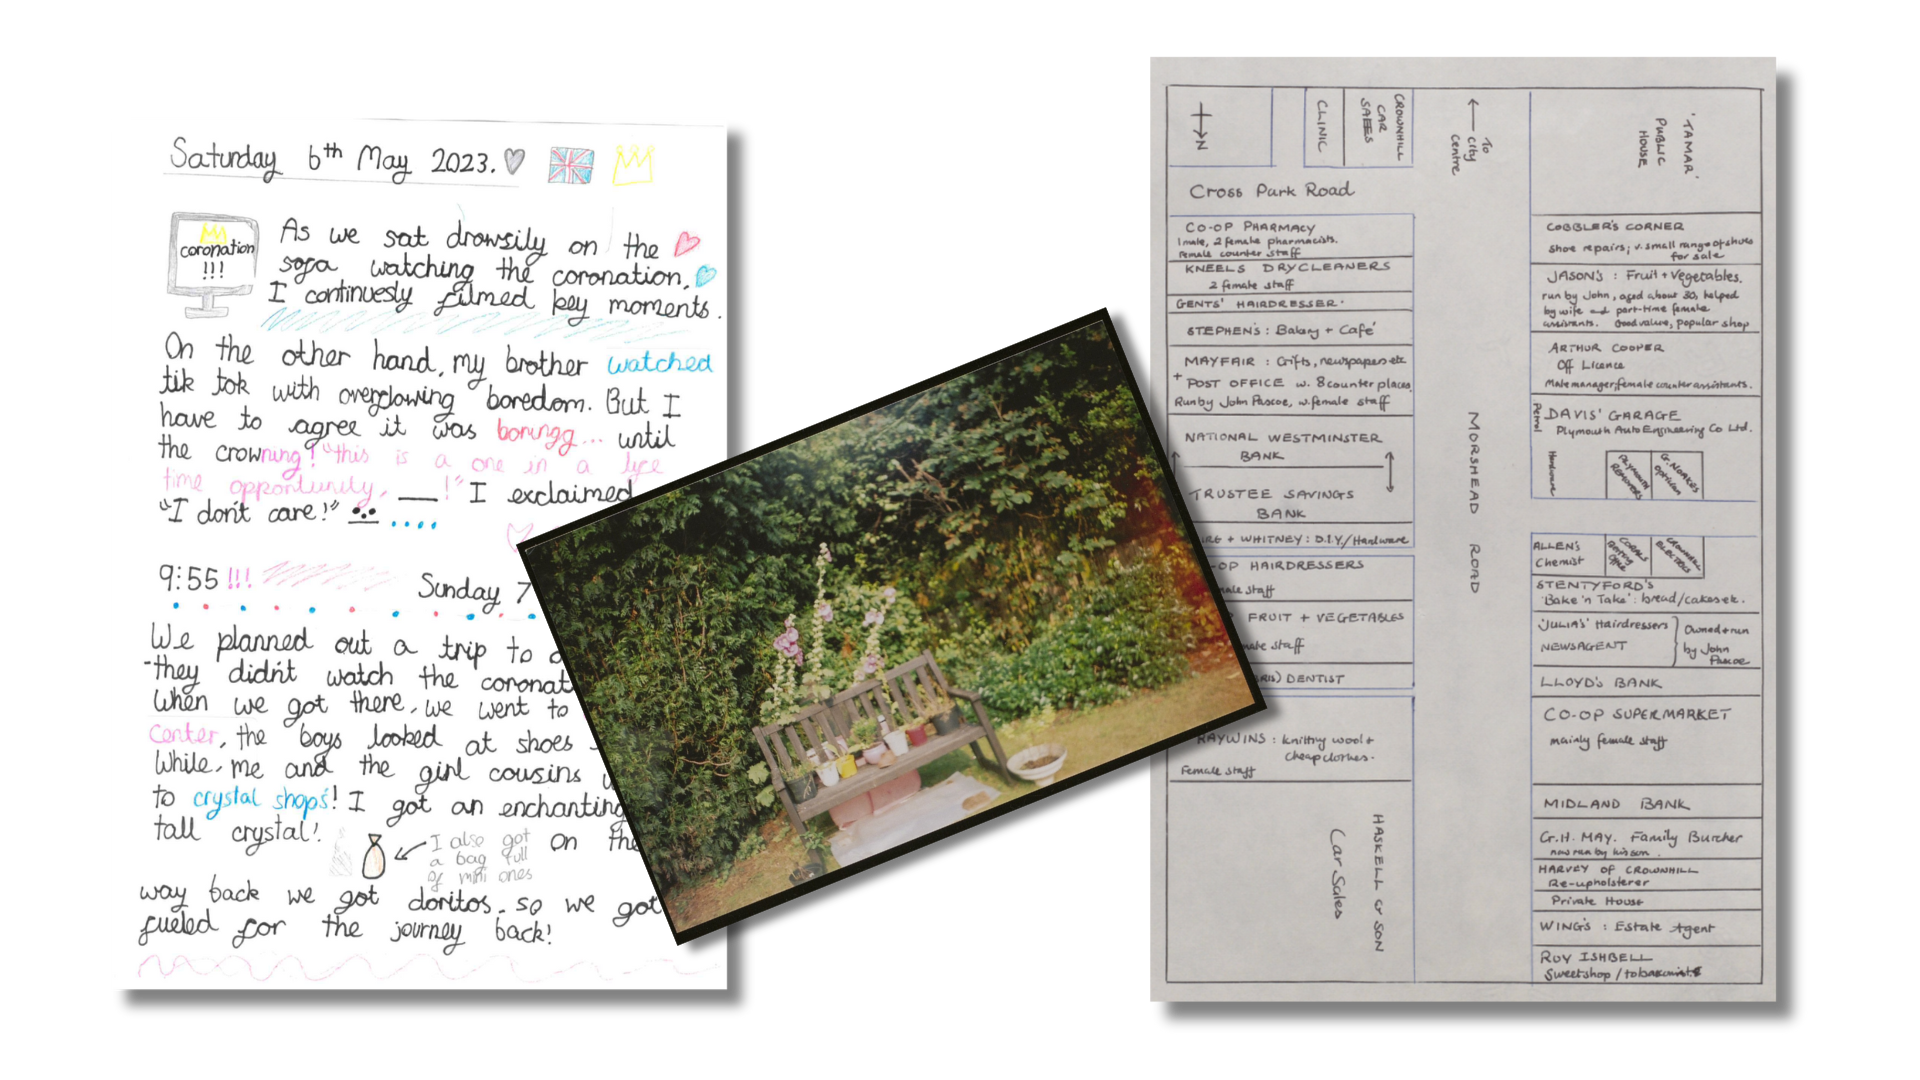 Saturday 6th May 2023.
coronation
!!!
As we sat drowsily on the
sofa watching the coronation,
I continuesly filmed key moments.
On the other hand, my brother watched
tik tok with overglowing boredom. But I
have to agree it was boringg... until
the crowning! "this is a one in a life
time opportunity, ___!" I exclaimed
"I don't care!"
9:55 !!!
Sunday 7
We planned out a trip to
-they didn't watch the coronat
When we got there, we went to
Center, the boys looked at shoes
While, me and the girl cousins
to crystal shops! I got an enchanting
tall crystal!
I also got
a bag full
of mini ones
on the
way back we got doritos. so we got
fueled for the journey back!
N
CLINIC
CROWNHILL
CAR
SALES
Cross Park Road
CO-OP PHARMACY
1 male, 2 female pharmacists.
Female counter staff
KNEELS DRYCLEANERS
2 female staff
GENTS' HAIRDRESSER.
STEPHEN'S : Bakery + Café
MAYFAIR : Gifts, newspapers etc
+ POST OFFICE w. 8 counter places
Run by John Pascoe, w. female staff
NATIONAL WESTMINSTER
BANK
TRUSTEE SAVINGS
BANK
+ WHITNEY: D.I.Y./Hardware
OP HAIRDRESSERS
male staff
FRUIT + VEGETABLES
male staff
DENTIST
RAYWINS : knitting wool +
cheap clothes.
Female staff
HASKELL & SON
Car Sales
To
City
Centre
MORSHEAD ROAD
'TAMAR'
PUBLIC
HOUSE
COBBLER'S CORNER
shoe repairs; v. small range of shoes
for sale
JASON'S : Fruit + Vegetables.
run by John, aged about 30, helped
by wife and part-time female
assistants. Good value, popular shop
ARTHUR COOPER
Off Licence
Male manager; female counter assistants.
Petrol
DAVIS' GARAGE
Plymouth Auto Engineering Co Ltd.
Hardware
PLYMOUTH
REMOVERS
G. NOAKES
optician
ALLEN'S
Chemist
CORALS
Betting
Office
CROWNHILL
ELECTRICS
STENTYFORD'S
'Bake 'n Take' : bread/cakes etc.
'JULIA'S' Hairdressers
NEWSAGENT
Owned + run
by John
Pascoe
LLOYD'S BANK
CO-OP SUPERMARKET
mainly female staff
MIDLAND BANK
G.H. MAY. Family Butcher
now run by his son.
HARVEY OF CROWNHILL
Re-upholsterer
Private House
WING'S : Estate Agent
ROY ISHBELL
Sweetshop / tobacconist